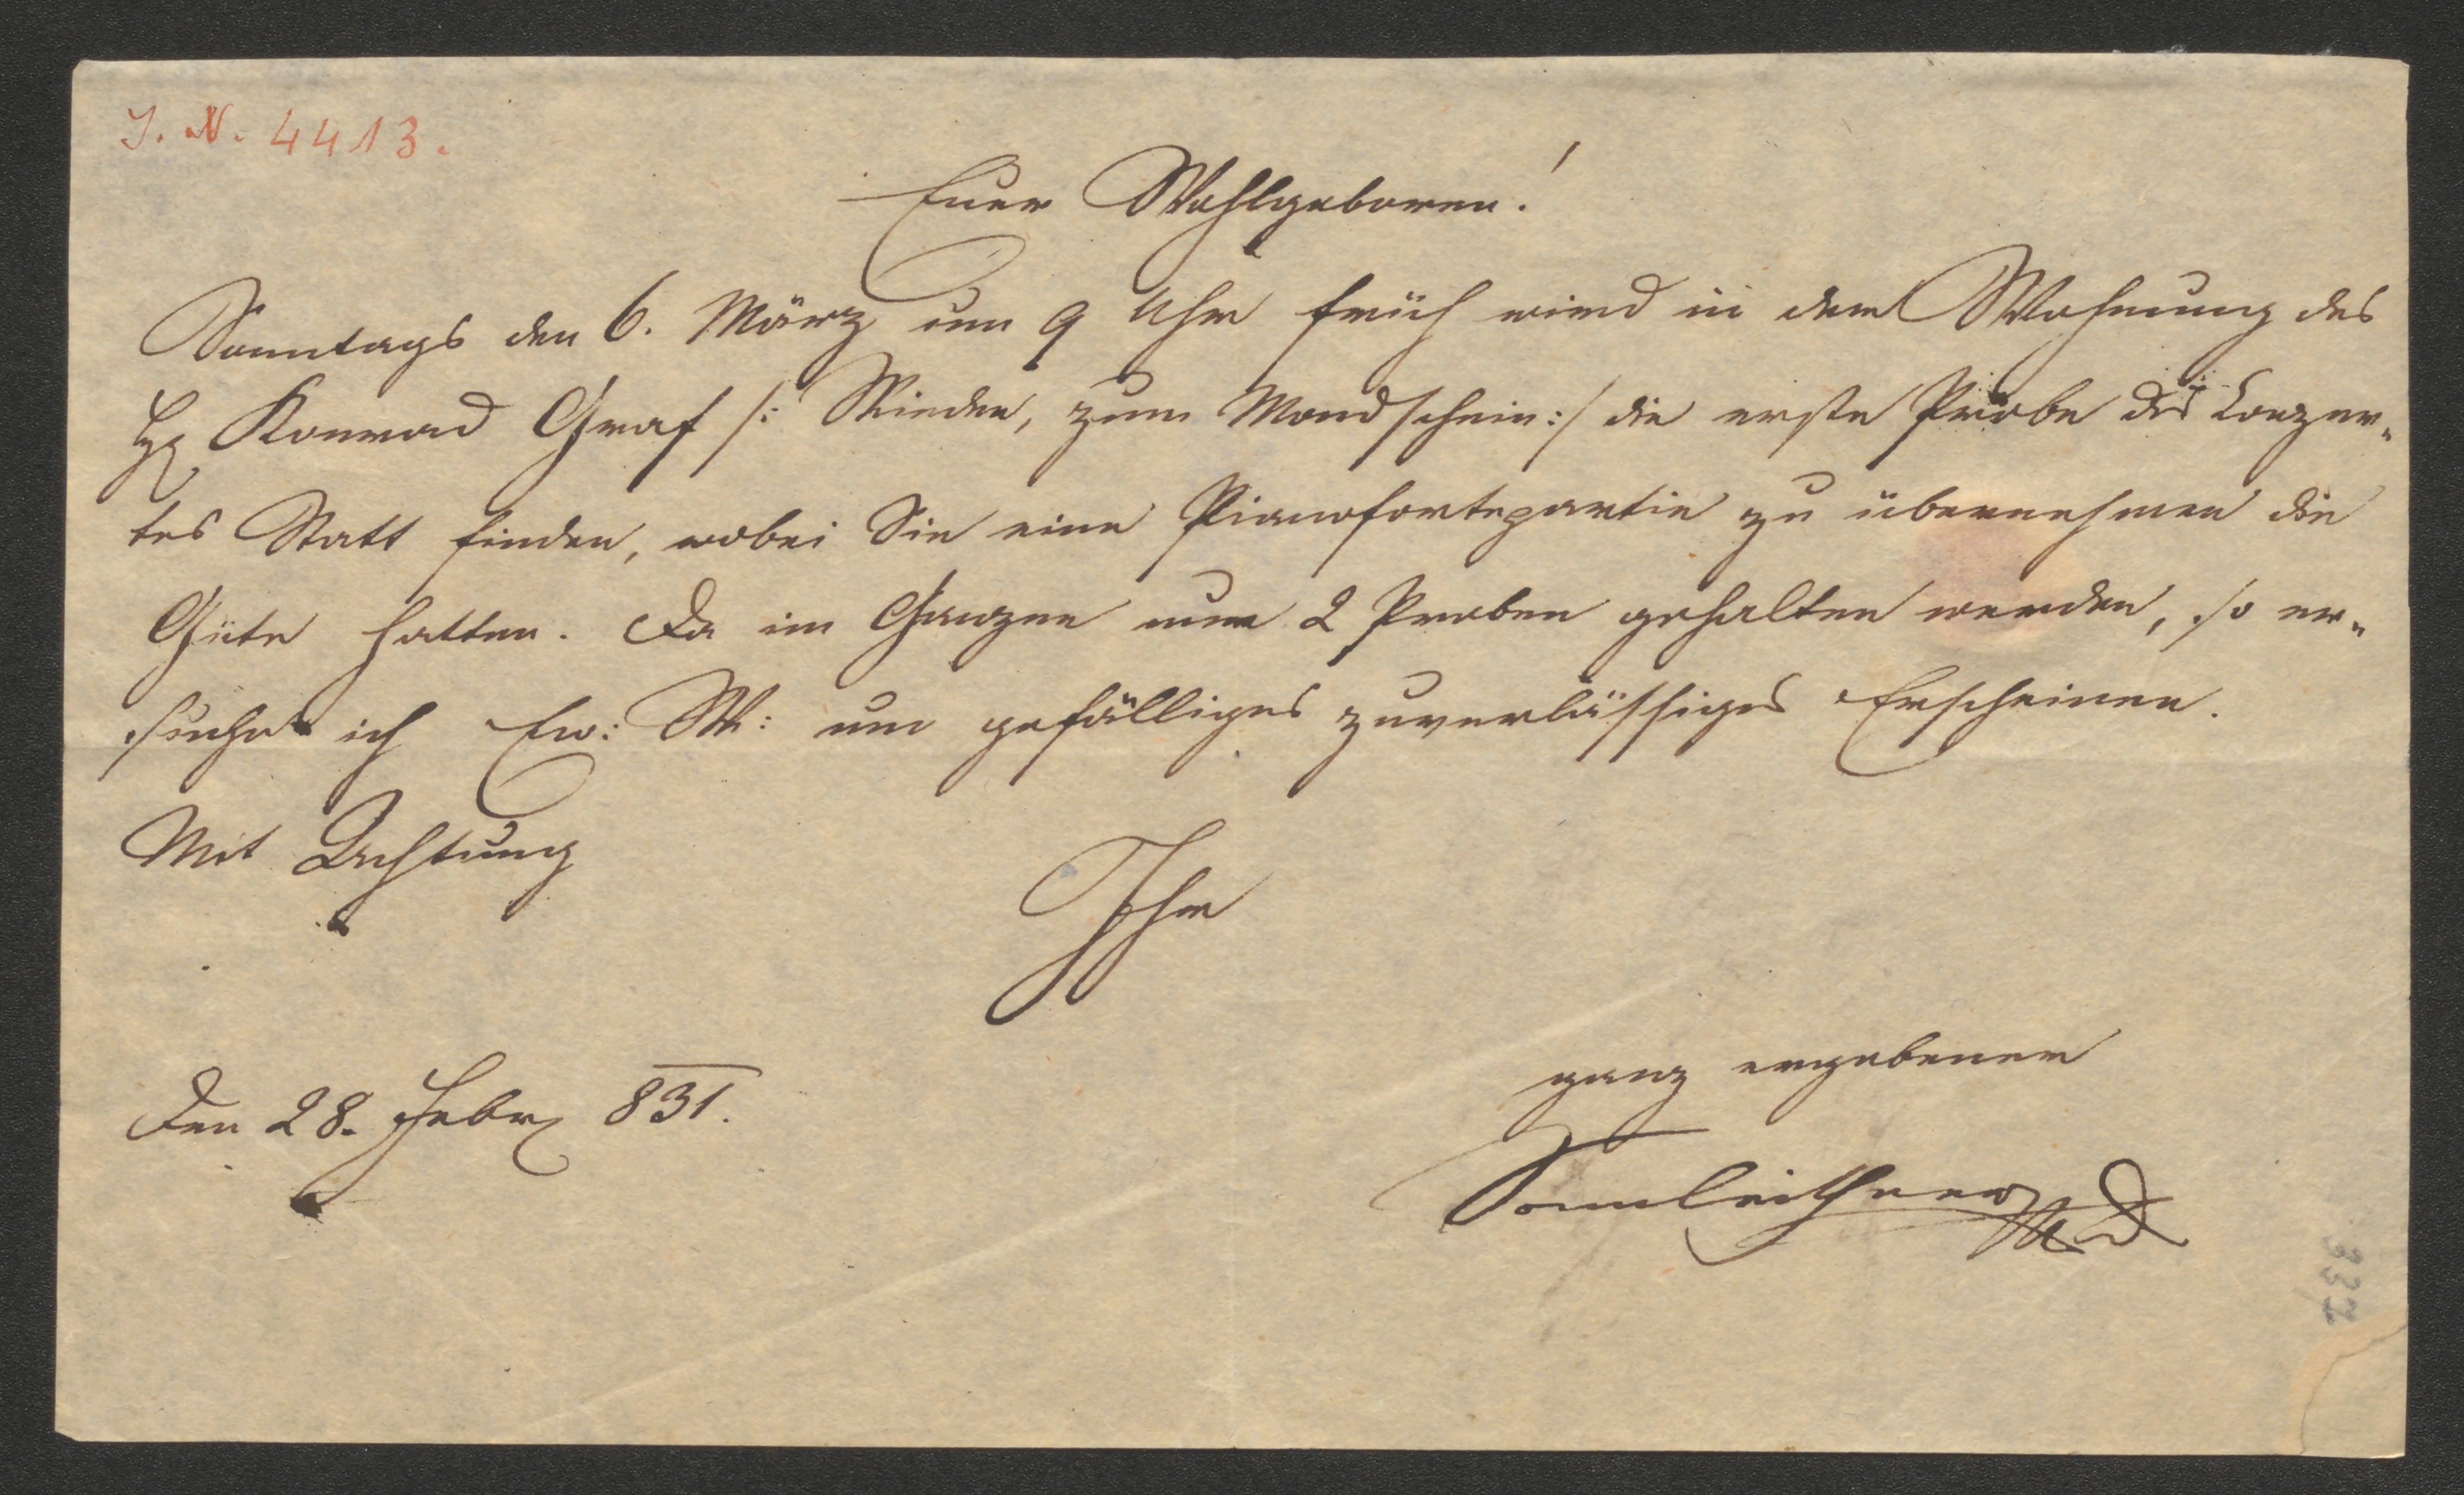 J. N. 4413.
Euer Wohlgeboren!
Sonntags den 6. März um 9 Uhr früh wird in der Wohnung des
H. Konrad Graf /: Wieden, zum Mondschein :/ die erste Probe des Conzer-
tes Statt finden, wobei Sie eine Pianofortepartie zu übernehmen die
Güte hatten. Da im Ganzen nur 2 Proben gehalten werden, so er-
suche ich Ew: W: um gefälliges zuverlässiges Erscheinen.
Mit Achtung
Ihr
ganz ergebener
Den 28. Febr 831.
Sonnleithner